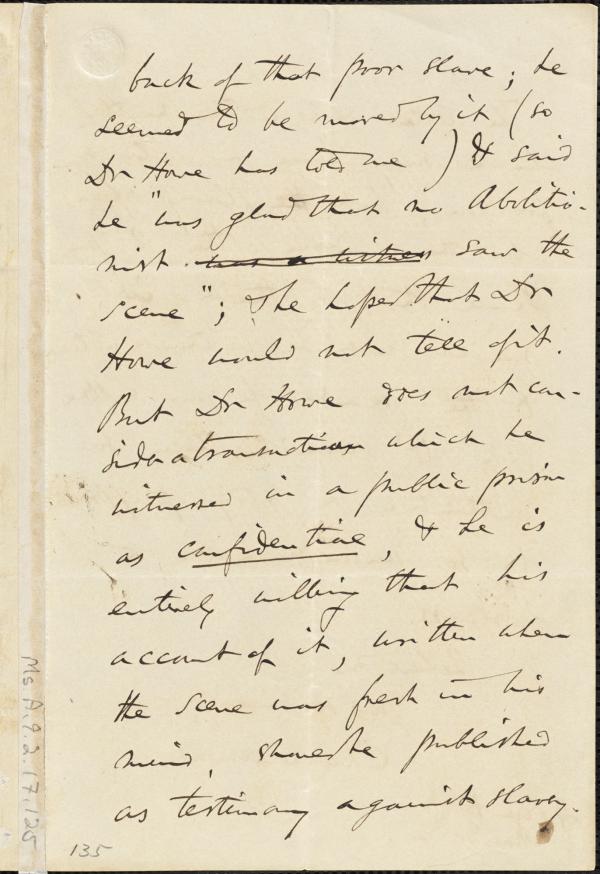 back of that poor slave; he
seemed to be moved by it (so
Dr Howe has told me) & said
he "was glad that no Abolitio-
nist was a witness saw the
scene"; & he hoped that Dr
Howe would not tell of it.
But Dr Howe does not con-
sider a transaction which he
witnessed in a public prison
as confidential, & he is
entirely willing that his
account of it, written when
the scene was fresh in his
mind, should be published
as testimony against slavery.
Ms A.9.2.17.125
135